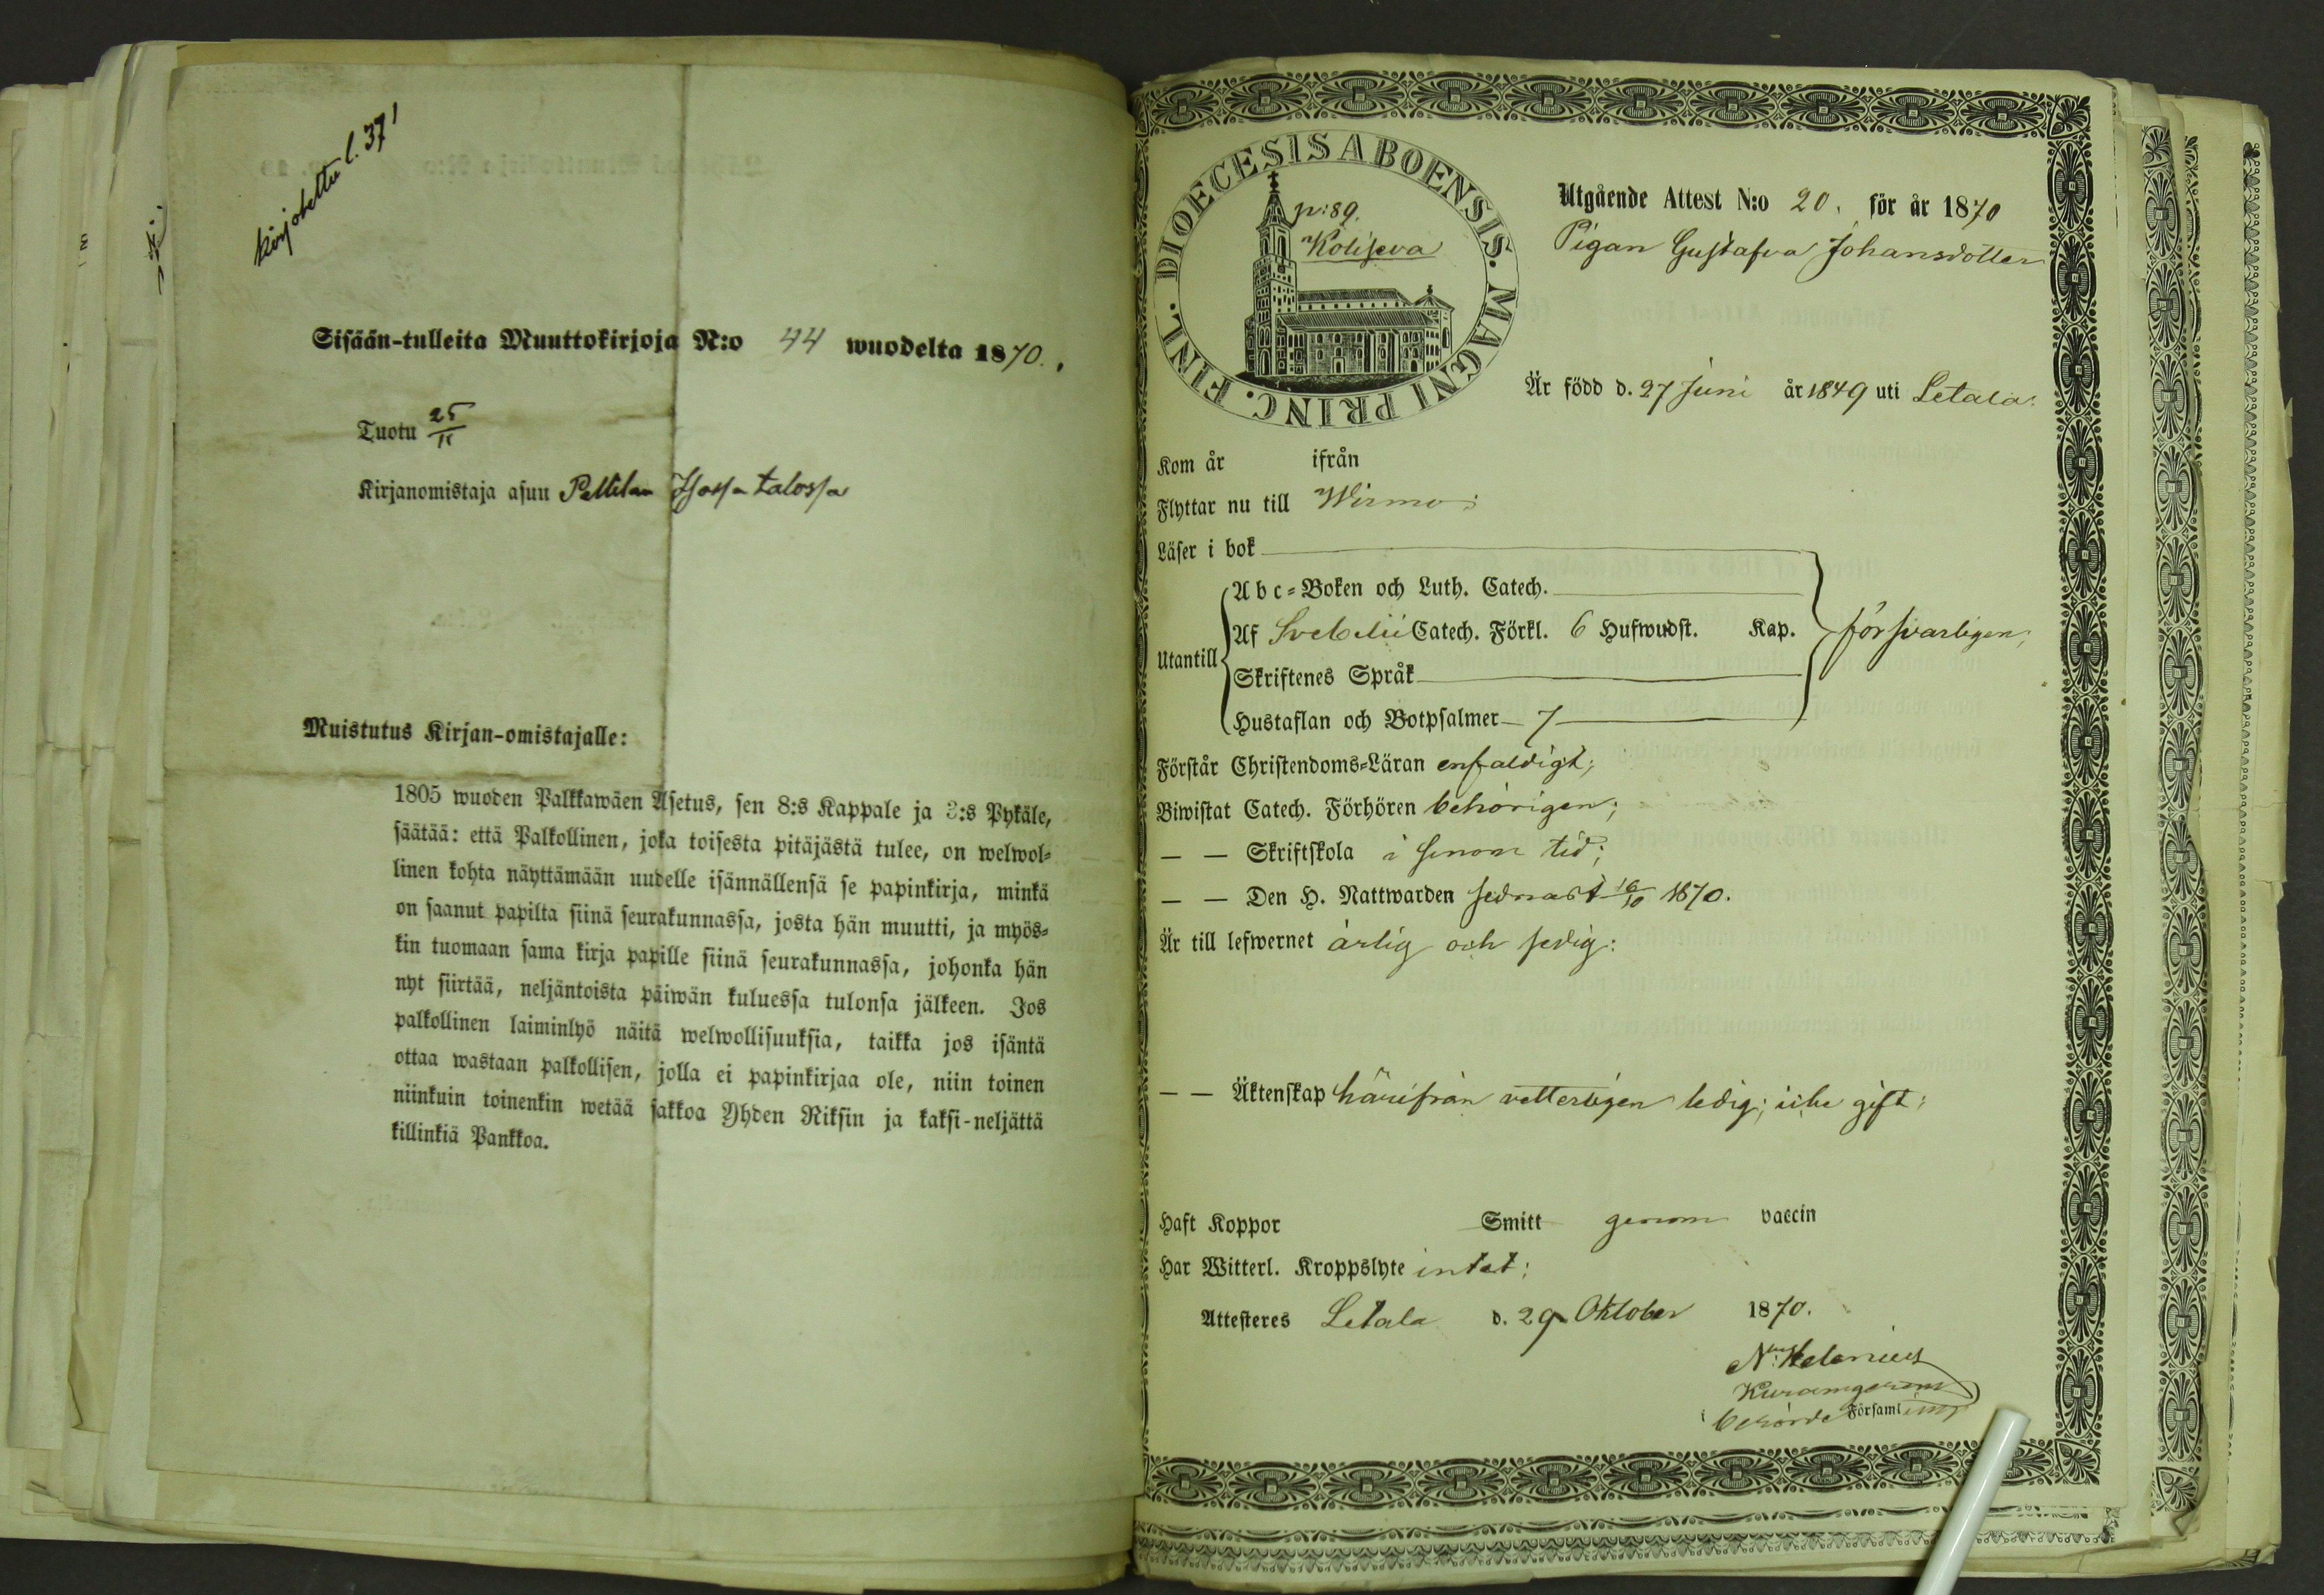 kirjotettu l. 371
Sisään-tulleita Muuttokirjoja N:o 44 wuodelta 1870.
Tuotu 25/11
Kirjanomistaja asuu talossa
Muistutus Kirjan-omistajalle:
1805 wuoden Palkkawäen Asetus, sen 8:s Kappale ja 3:s Pykäle,
säätää: että Palkollinen, joka toisesta pitäjästä tulee, on welwol-
linen kohta näyttämään uudelle isännällensä se papinkirja, minkä
on saanut papilta siinä seurakunnassa, josta hän muutti, ja myös-
kin tuomaan sama kirja papille siinä seurakunnassa, johonka hän
nyt siirtää, neljäntoista päiwän kuluessa tulonsa jälkeen. Jos
palkollinen laiminlyö näitä welwollisuuksia, taikka jos isäntä
ottaa wastaan palkollisen, jolla ei papinkirjaa ole, niin toinen
niinkuin toinenkin wetää sakkoa Yhden Riksin ja kaksi-neljättä
killinkiä Pankkoa.
DIOECESIS ABOENSIS. MAGNI PRINC. FINL.
p: 89.
Koliseva
Utgående Attest N:o 20. för år 1870
Pigan Gustafva Johansdotter
Är född d. 27 Juni år 1849 uti Letala.
Kom år ifrån
Flyttar nu till Wirmo;
Läser i bok
Utantill
Abc-Boken och Luth. Catech.
Af Svebelii Catech. Förkl. 6 Hufwudst. Kap.
Skriftenes Språk
Hustaflan och Botpsalmer 7
försvarligen;
Förstår Christendoms-Läran enfaldigt;
Biwistat Catech. Förhören behörigen;
— — Skriftskola i sinom tid;
— — Den H. Nattwarden sednast 16/10 1870.
Är till lefwernet ärlig och sedig:
— — Äktenskap härifrån vetterligen ledig; icke gift;
Haft Koppor Smitt genom vaccin
Har Witterl. Kroppslyte intet;
Attesteres Letala d. 29 Oktober 1870.
Helenius
i Församling